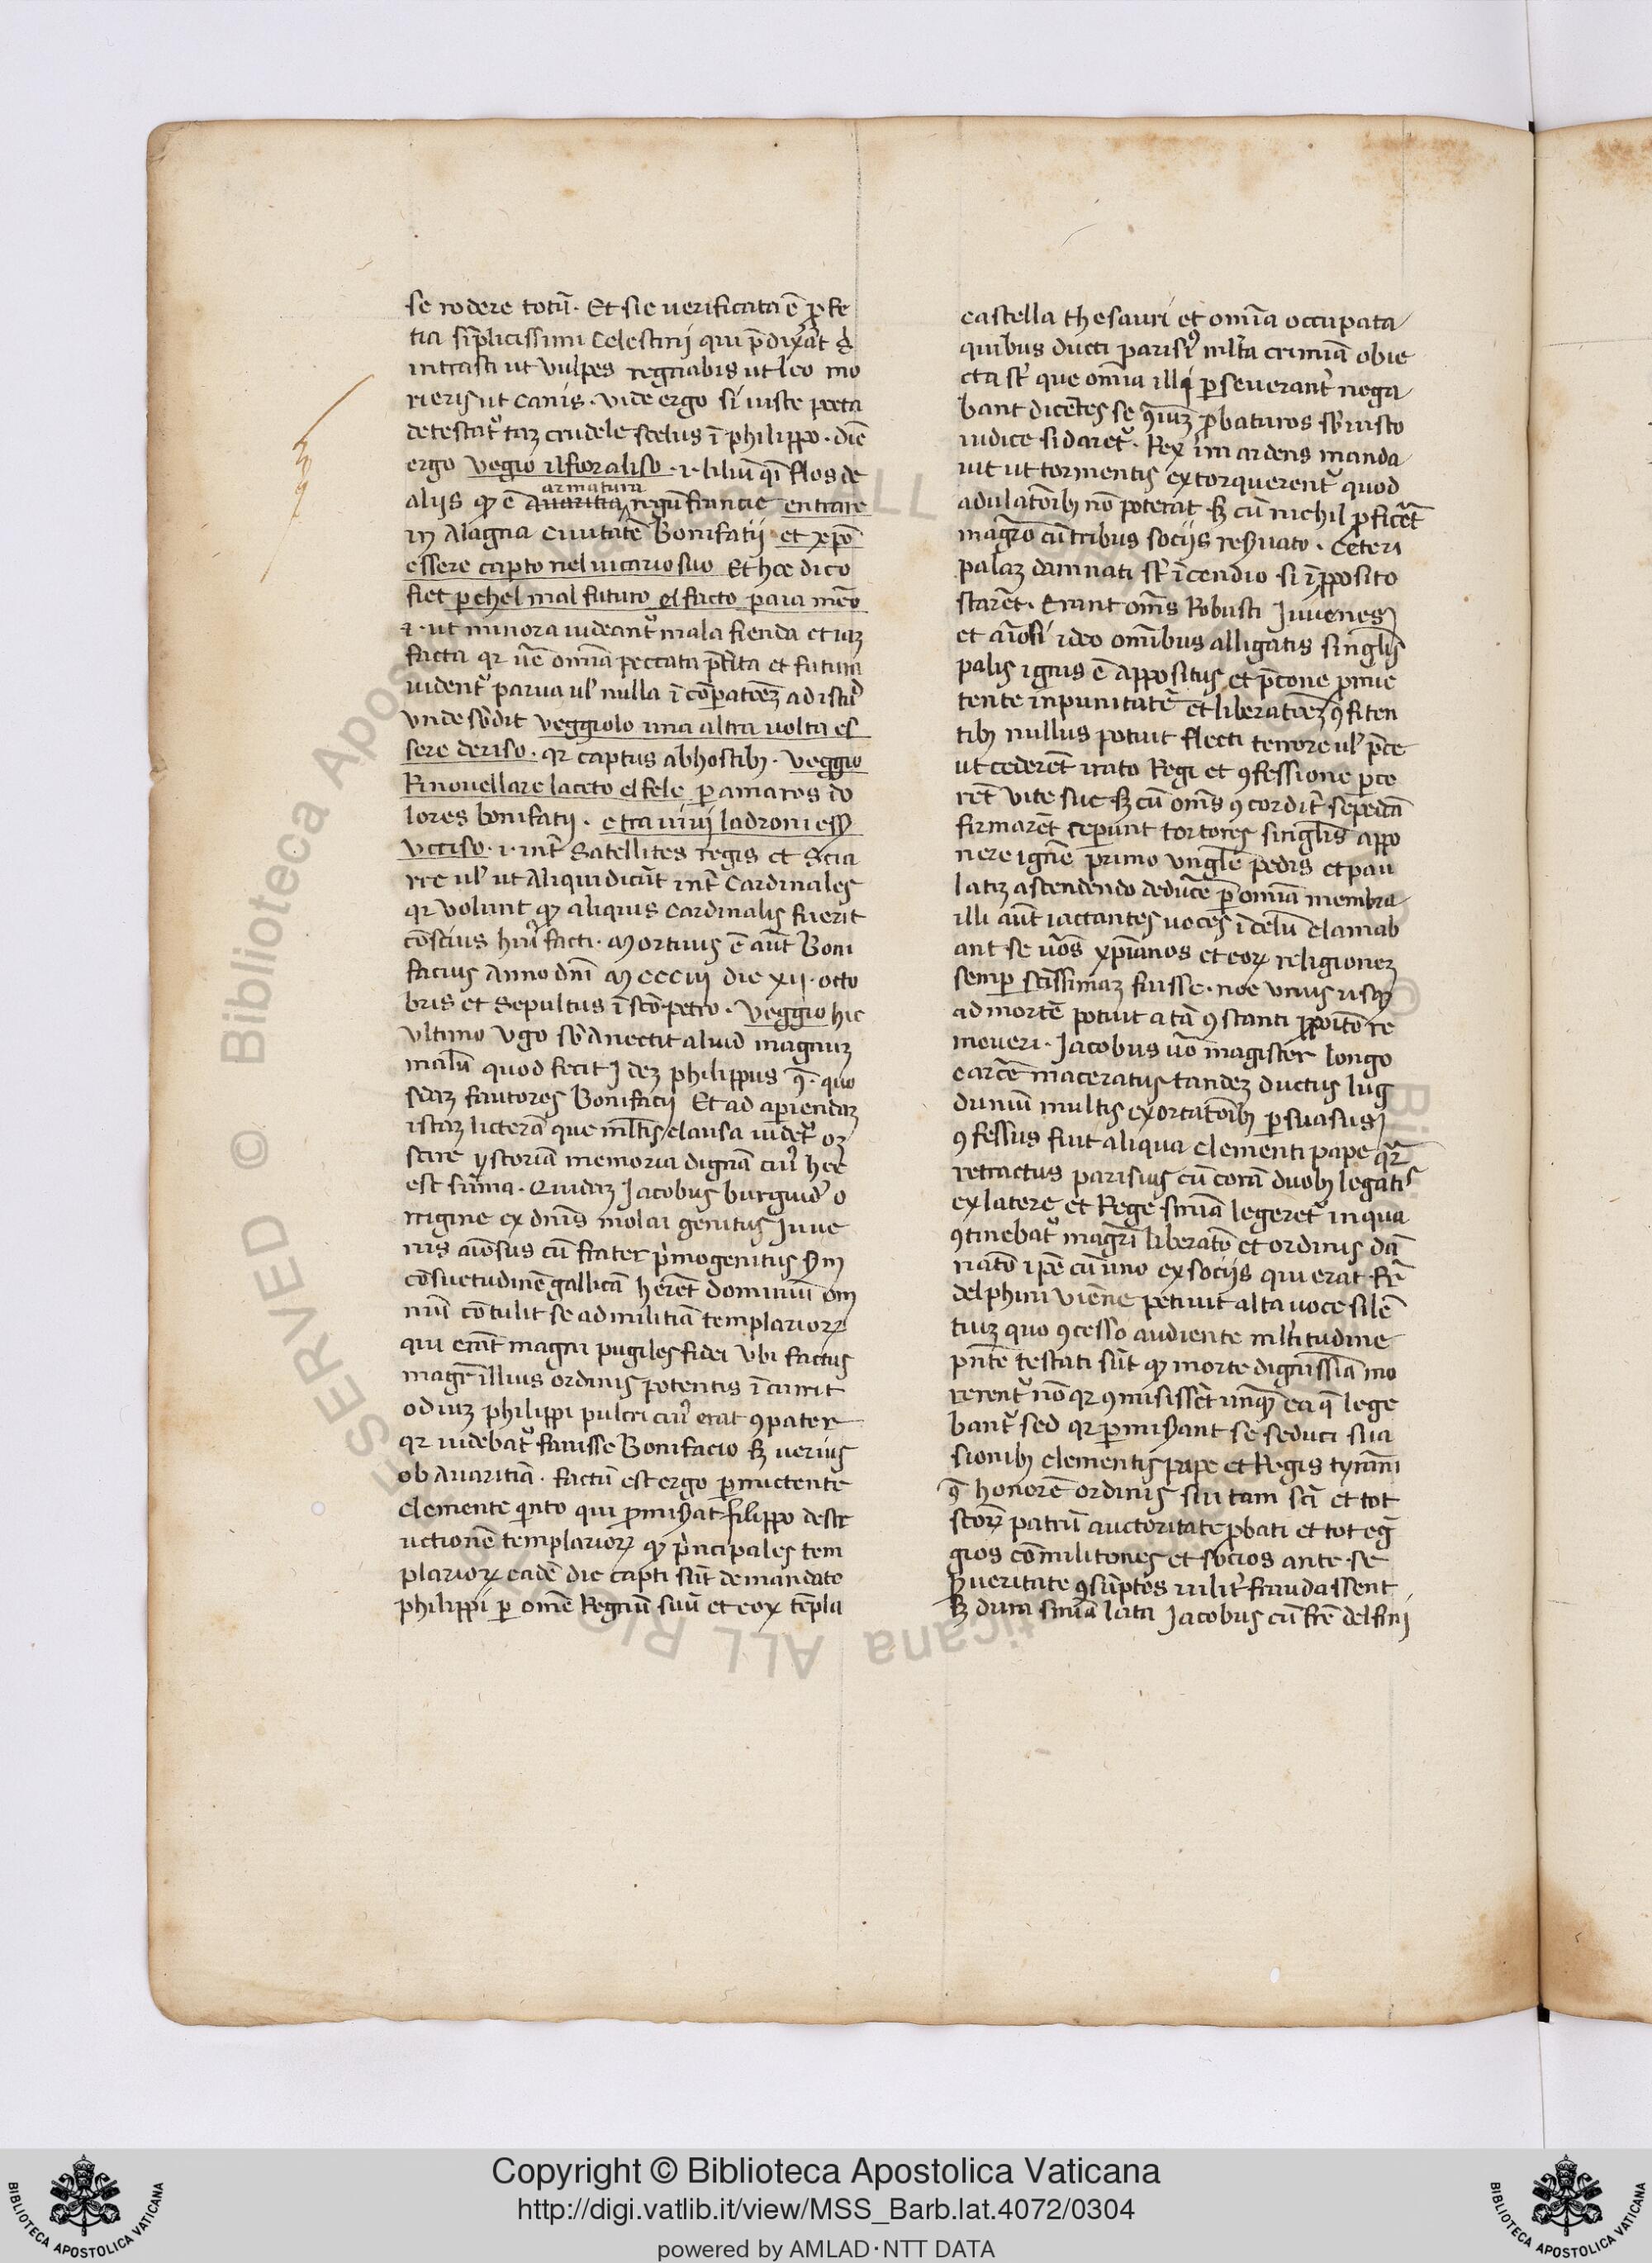 se rodere totū. Et sic uerificata ē profe
tia simplicissimi Celestinj qui p̄dixerat d
intrasti ut vulpes regnabis ut leo mo
rieris ut canis. vide ergo si iuste poeta
detestat᷑ taz crudele scelus ī philippo. dīe
ergo vegio ilfioraliso .i. liliū qi flos de
alijs qꝫ ē Auaritia armatura regū francie entrare
in Alagna Ciuitatē Bonifatij et xp̄o
essere capto nel uicario suo Et hoc dico
fiet perchel mal futuro el facto paia meno
.i. ut minora uideant᷑ mala fienda et iaz
facta qr omīa peccata p̄terita et futura
uident᷑ parua ul' nulla ī cōpatōez ad istud
vnde sb̄dit veggiolo una altra uolta es
sere deriso. qr captus ab hostibꝫ. veggio
Rinouellare laceto el fele p amaros do
lores bonifatij. e tra uiui ladroni esser
vcciso .i. int̄ Satellites regis et Scia
rre ul' ut Aliqui dicūt int̄ Cardinales
qr volunt qꝫ aliquis Cardinalis fuerit
cōscius hui᷒ facti. Mortuus ē aūt Boni
facius Anno dn̄i M ccciij die xij. octo
bris et sepultus ī scō petro. veggio hic
vltimo vgo sb̄Anectit aliud magnuz
malū quod fecit Idez philippus quo
sdaz fautores Bonifacij Et ad apiendaz
istaz licterā que ml̄tis clausa uidet᷑ oꝫ
scire ystoriā memoria dignā cui᷒ hec
est sūma. Quidaz Jacobus burgund᷑ o
rrigine ex dn̄is molai genitus Juue
nis aīosus cū frater p̄mogenitus sm
cōsuetudinē gallicā hēret dominiū om
niū cōtulit se ad militiā templarioꝝ
qui erāt magni pugiles fidei vbi factus
magr̄ illius ordinis potentis īcurrit
odiuz philippi pulcri cui᷒ erat ꝯpater
qr uidebat᷑ fauisse Bonifacio sꝫ uerius
ob Auaritiā. factū est ergo pmictente
Clemente q̄nto qui p̄miserat filippo destr
uctionē templarioꝝ qꝫ p̄ncipales tem
plarioꝝ eadē die capti sūt de mandato
philippi p omē Regnū suū et eoꝝ tēpla
castella thesauri et omīa occupata
quibus ducti parisi᷒ ml̄ta crimīa obie
cta st̄ que omīa illi pseuerant᷑ nega
bant dicētes se probaturos sb̄ iusto
iudice si daret᷑. Rex īm ardens manda
uit ut tormentis extorquerent᷑ quod
adulatōibꝫ nō poterat sꝫ cū nichil pficēt
magr̄o cū tribus socijs reseruato. Ceteri
palaz damnati st̄ īcendio si īpposito
starēt. Erant oms̄ Robusti Juuenes
et aīosi ideo omībus alligatis singl̄is
palis ignis ē appositus et p̄cone p̄mic
tente inpunitatē et liberatōez ꝯfiten
tibꝫ nullus potuit flecti terrore ul' p̄ce
ut cederēt irato Regi et ꝯfessione pce
rēt vite sue sꝫ cū oms̄ ꝯcordit᷑ se
firmarēt ceperunt tortores singl̄is appo
nere ignē primo vngl̄e pedis et pau
latiz ascendendo deducē p omīa membra
illi aūt iactantes uoces ī celū clamab
ant se ūos xp̄ianos et eoꝝ religionez
semp scīssimaz fuisse. nec vnus usqꝫ
ad mortē potuit a tā ꝯstanti pposito re
moueri. Jacobus ūo magister longo
carcē maceratus tandez ductus lug
dunū multis exortatōibꝫ psuasus
ꝯfessus fuit aliqua Clementi pape
retractus parisius cū corā duobꝫ legatis
ex latere et Rege sniam legeret᷑ in qua
ꝯtinebat᷑ magr̄i liberatō et ordinis dā
natō ip̄e cū uno ex socijs qui erat fr̄
delphini viēne petiuit alta uoce silē
tiuz quo ꝯcesso audiente ml̄titudine
p̄nte testati sūt qꝫ morte dignissīa mo
rerent᷑ nō qr ꝯmisissēt unqꝫ ea q̄ lege
bant᷑ sed qr pmiserant se seduci sua
sionibꝫ clementis pape et Regis tyranni
ꝯ honorē ordinis sui tam sc̄i et tot
sc̄oꝝ patrū auctoritate pbati et tot egr
gios cōmilitones et socios ante se
p ueritate ꝯsūptos uilit᷑ fraudassent
sꝫ dum snia lata Jacobus cū fr̄e delfinj
Copyright © Biblioteca Apostolica Vaticana
http://digi.vatlib.it/view/MSS_Barb.lat.4072/0304
powered by AMLAD·NTT DATA